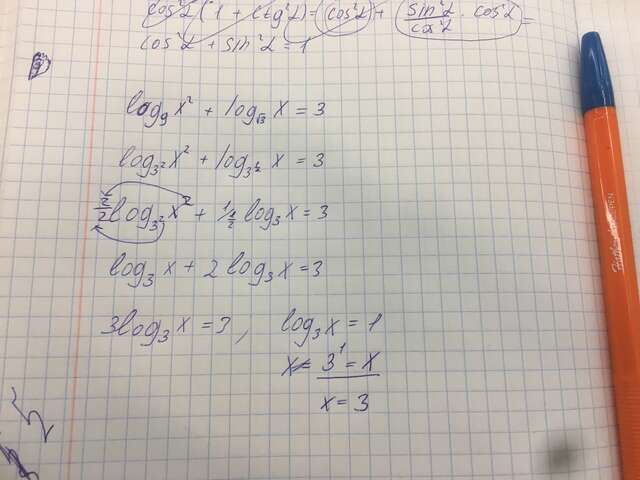 cos²α (1 + tg²α) = cos²α + sin²α/cos²α · cos²α =
cos²α + sin²α = 1
log₉ x² + log_√3 x = 3
log_3² x² + log_3^½ x = 3
2/2 log₃ x + 1/½ log₃ x = 3
log₃ x + 2 log₃ x = 3
3log₃ x = 3, log₃ x = 1
3¹ = x
x = 3
PEN